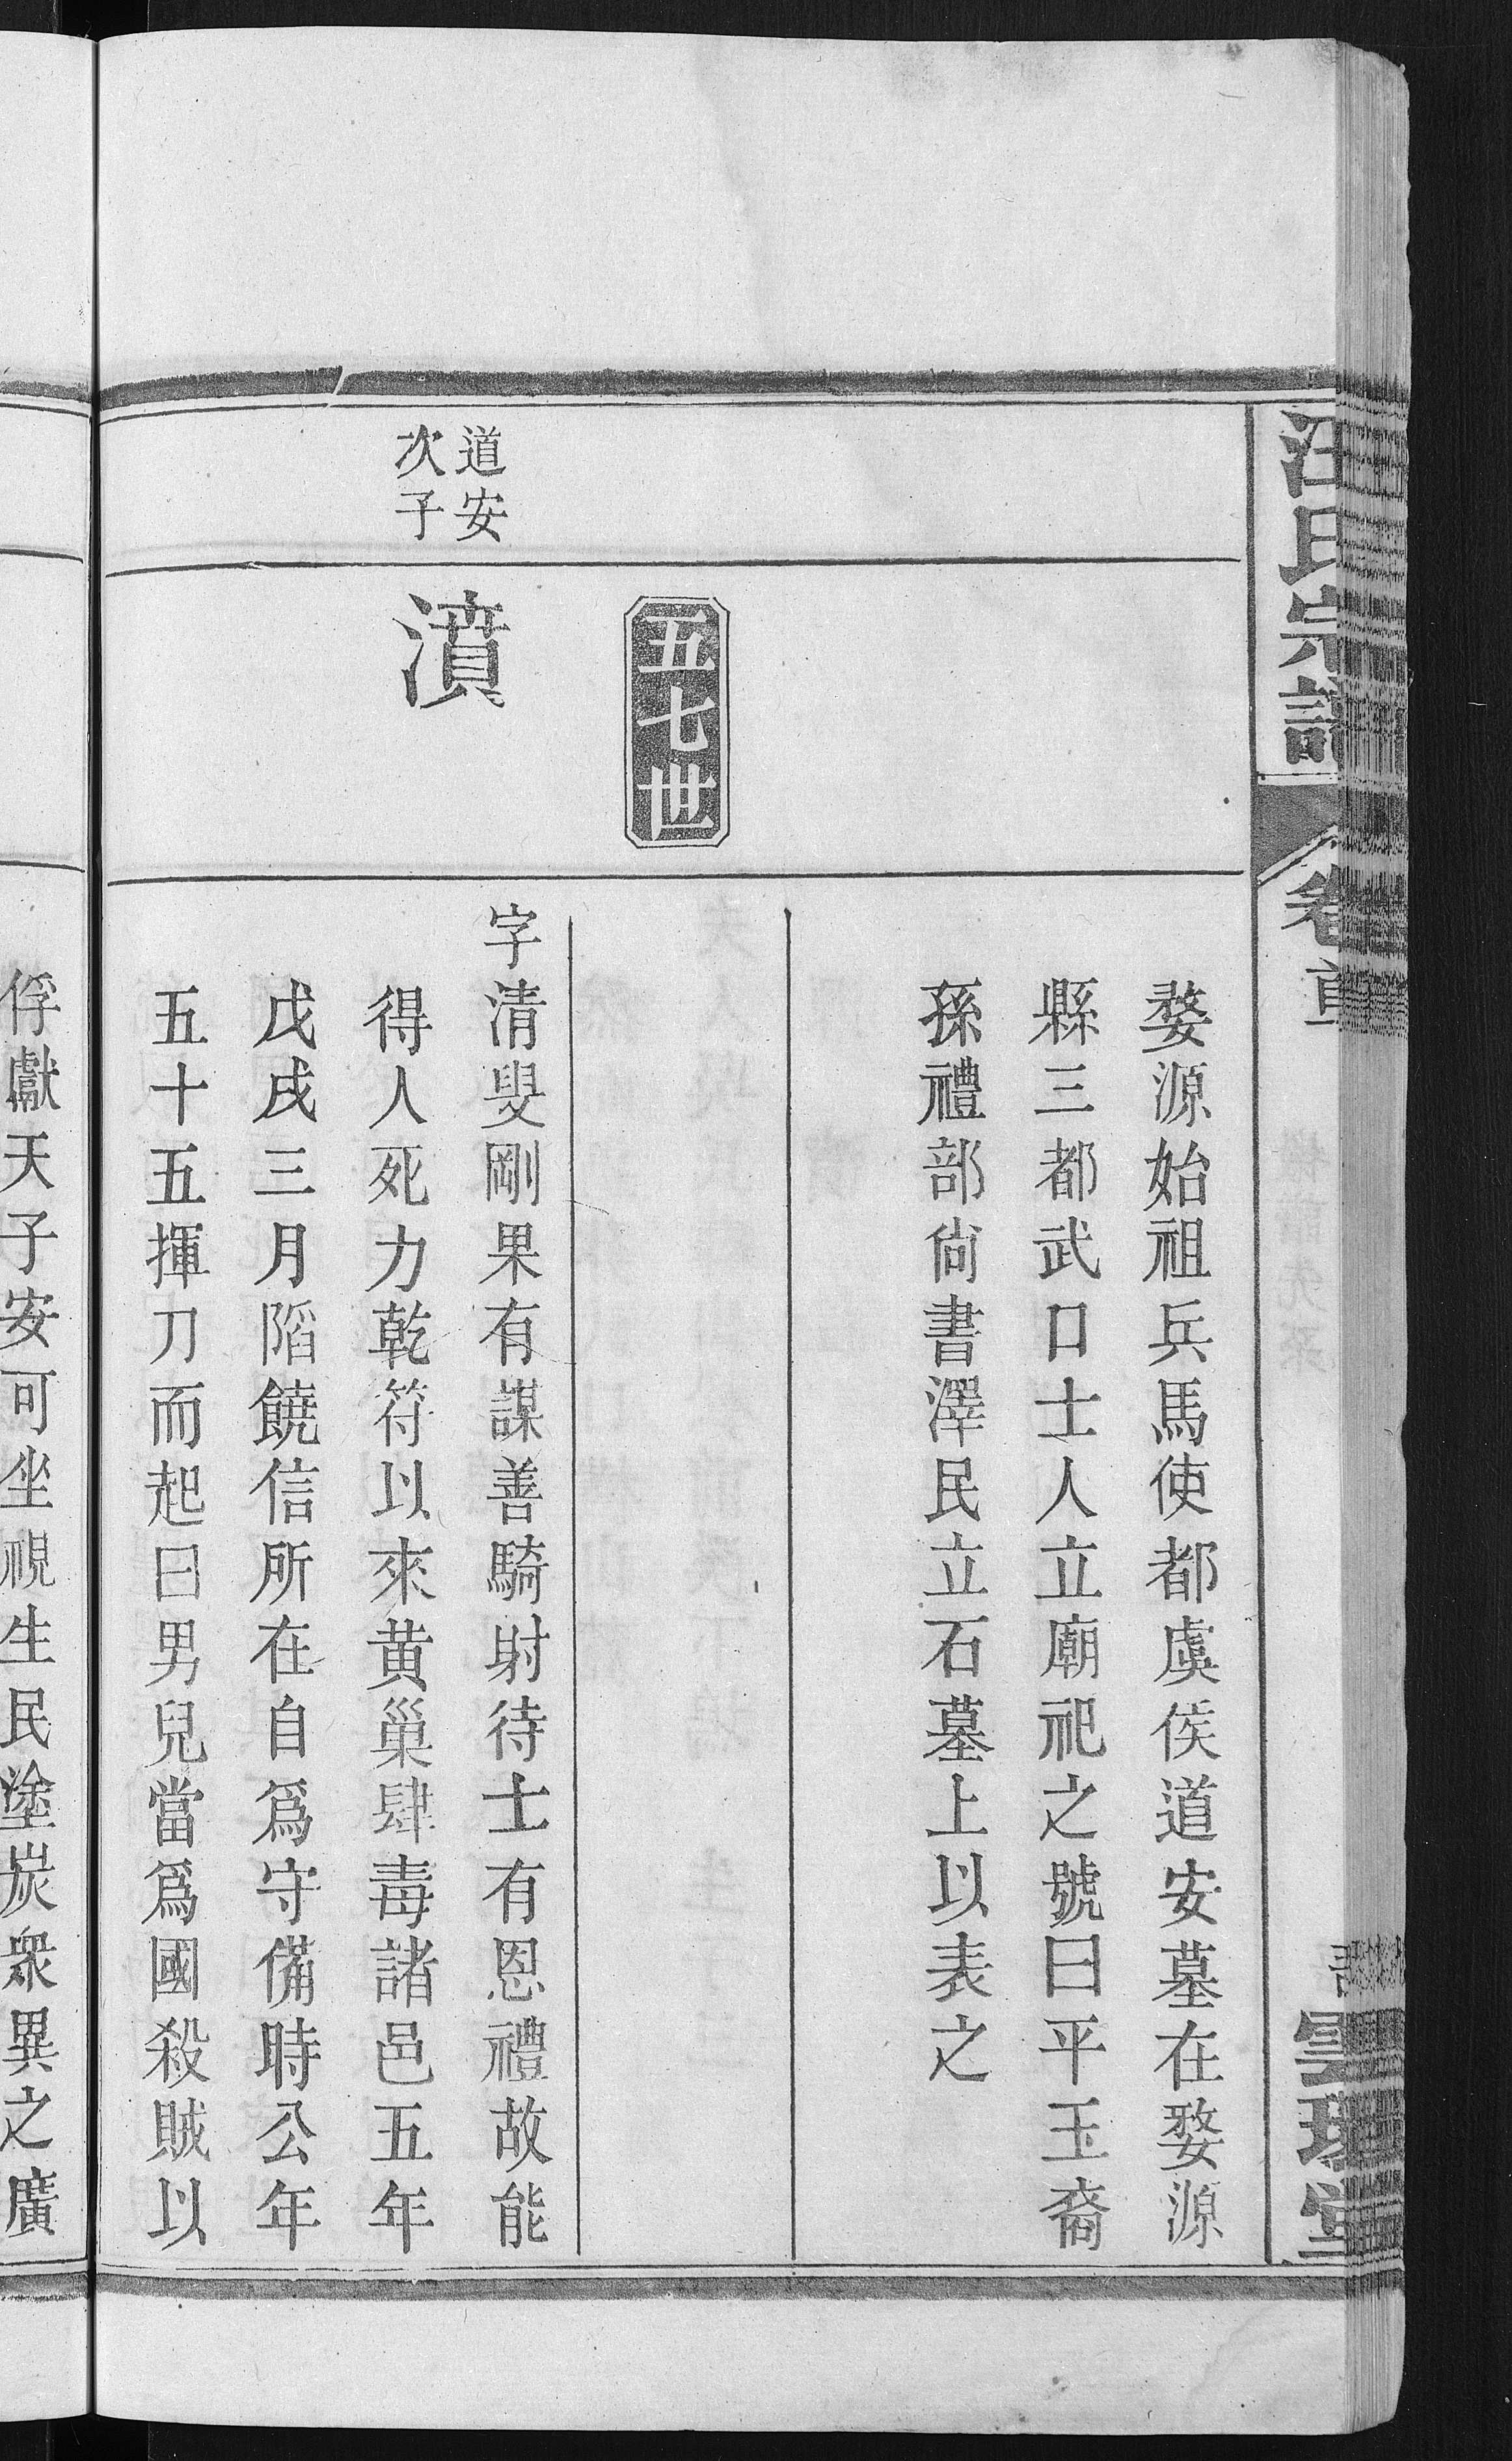 汪氏宗譜
卷首
雲環堂
婺源始祖兵馬使都虞侯道安墓在婺源
縣三都武口士人立廟祀之號曰平玉裔
孫禮部尙書澤民立石墓上以表之
五七世
道安
次子
濆
字清叟剛果有謀善騎射待士有恩禮故能
得人死力乾符以來黄巢肆毒諸邑五年
戊戌三月陷饒信所在自爲守備時公年
五十五揮刀而起曰男兒當爲國殺賊以
俘獻天子安可坐視生民塗炭衆異之廣